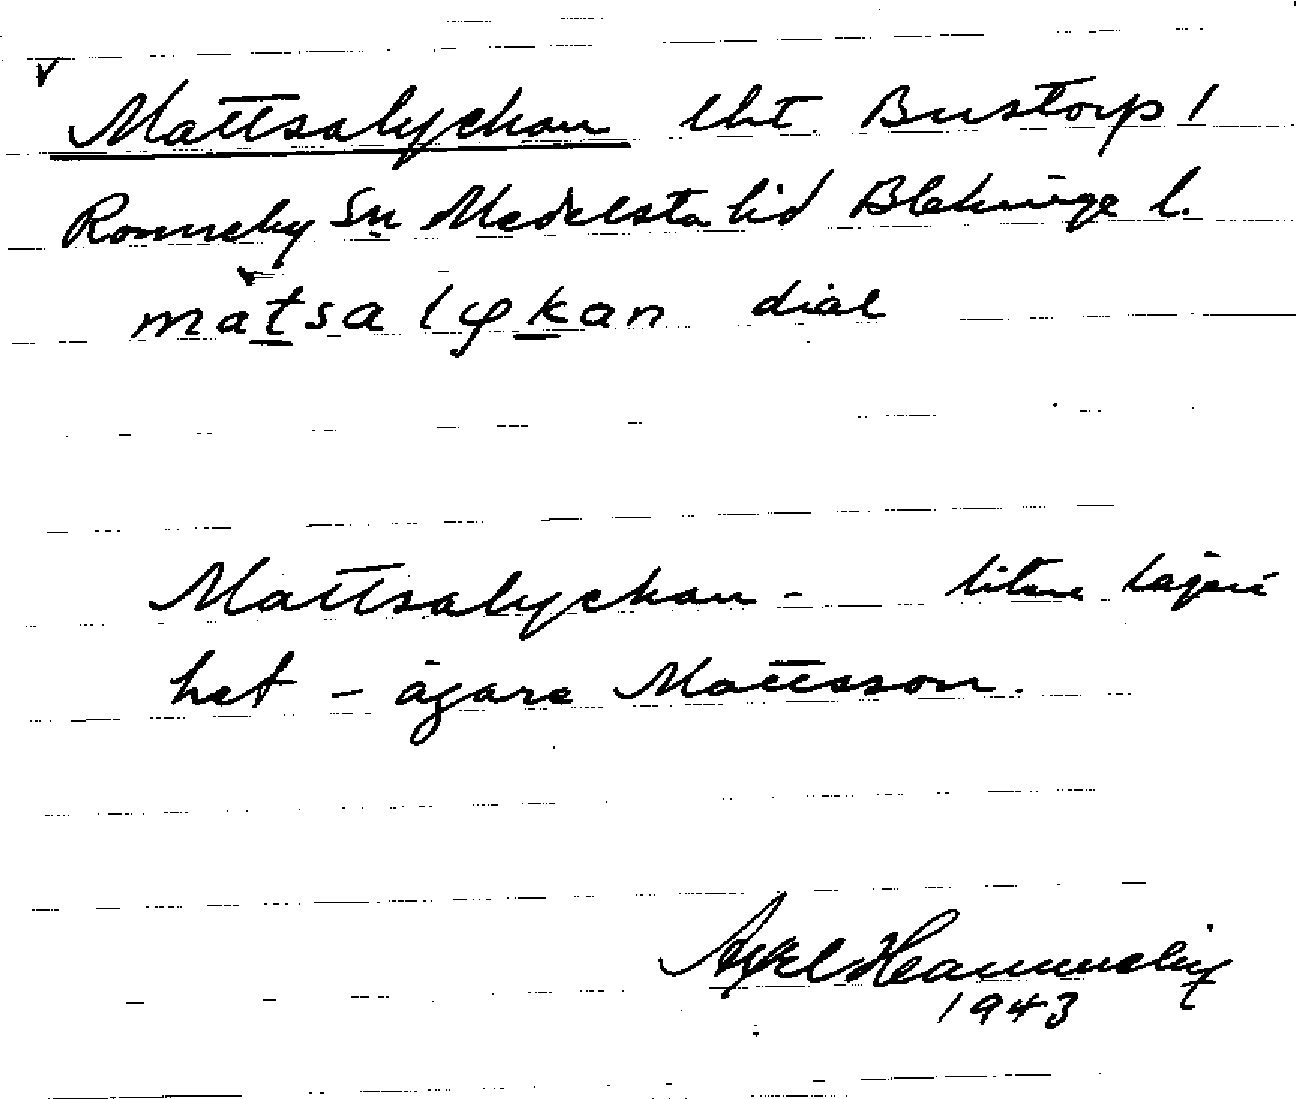 Mattsalyckan lht Bustorp 1
Ronneby Sn Medelsta hd Blekinge l.
matsalykan dial
Mattsalyckan - liten lägen
het - ägare Mattsson.
Axel
1943